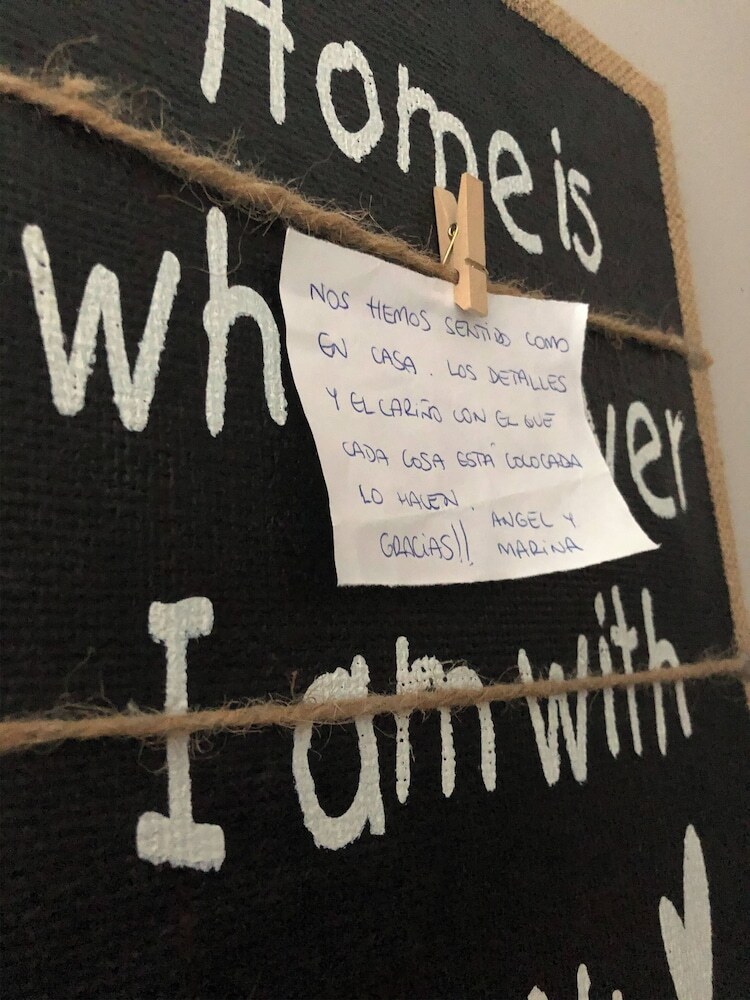 Home is
wh
ver
NOS HEMOS SENTIDO COMO
EN CASA. LOS DETALLES
Y EL CARIÑO CON EL QUE
CADA COSA ESTÁ COLOCADA
LO HACEN.
GRACIAS!!
ANGEL Y
MARINA
I am with